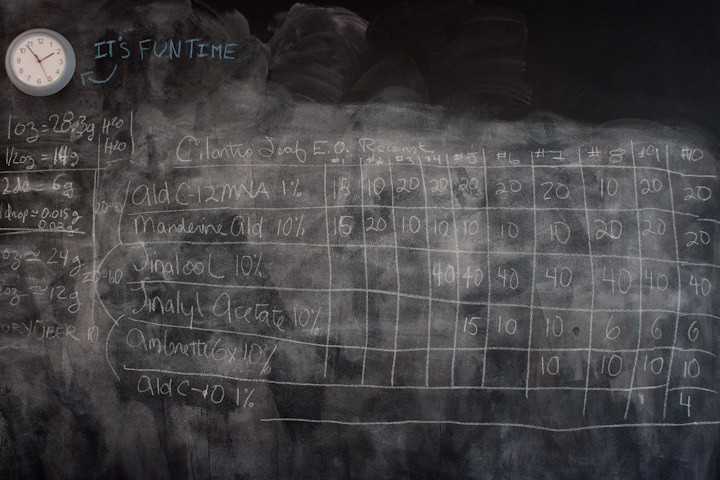 IT'S FUNTIME
1oz = 28.3g H2O
1/2oz = 14g H2O
= 6g
1 drop ≈ 0.015g
0.03g
oz ≈ 24g
oz ≈ 12g
Cilantro Leaf E.O. Reconst
#1 #2 #3 #4 #5 #6 #7 #8 #9 #10
Ald C-12 MNA 1% 15 10 20 20 20 20 20 10 20 20
Manderine Ald 10% 15 20 10 10 10 10 10 20 20 20
Linalool 10% 40 40 40 40 40 40 40
Linalyl Acetate 10% 15 10 10 6 6 6
Ambrette 6x 10% 10 10 10 10
Ald C-10 1% 4